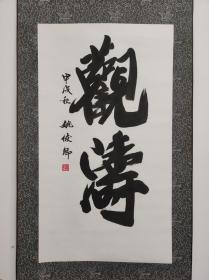 觀濤
甲戌秋 姚俊卿